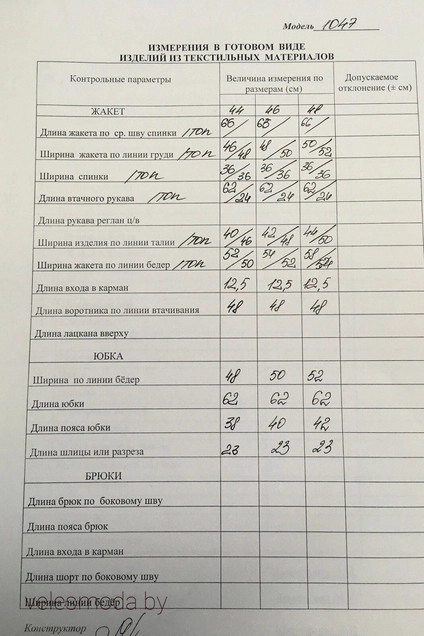 Модель 1047
ИЗМЕРЕНИЯ В ГОТОВОМ ВИДЕ
ИЗДЕЛИЙ ИЗ ТЕКСТИЛЬНЫХ МАТЕРИАЛОВ
Контрольные параметры Величина измерения по размерам (см) Допускаемое отклонение (± см)
ЖАКЕТ 44 46 48
Длина жакета по ср. шву спинки /топ 66/ 66/ 66/
Ширина жакета по линии груди /топ 46/48 48/50 50/52
Ширина спинки /топ 36/36 36/36 36/36
Длина втачного рукава /топ 62/24 62/24 62/24
Длина рукава реглан ц/в
Ширина изделия по линии талии /топ 40/46 42/48 44/50
Ширина жакета по линии бедер /топ 52/50 54/52 58/54
Длина входа в карман 12,5 12,5 12,5
Длина воротника по линии втачивания 48 48 48
Длина лацкана вверху
ЮБКА
Ширина по линии бёдер 48 50 52
Длина юбки 62 62 62
Длина пояса юбки 38 40 42
Длина шлицы или разреза 23 23 23
БРЮКИ
Длина брюк по боковому шву
Длина пояса брюк
Длина входа в карман
Длина шорт по боковому шву
Ширина линии бедер
valesmoda.by
Конструктор